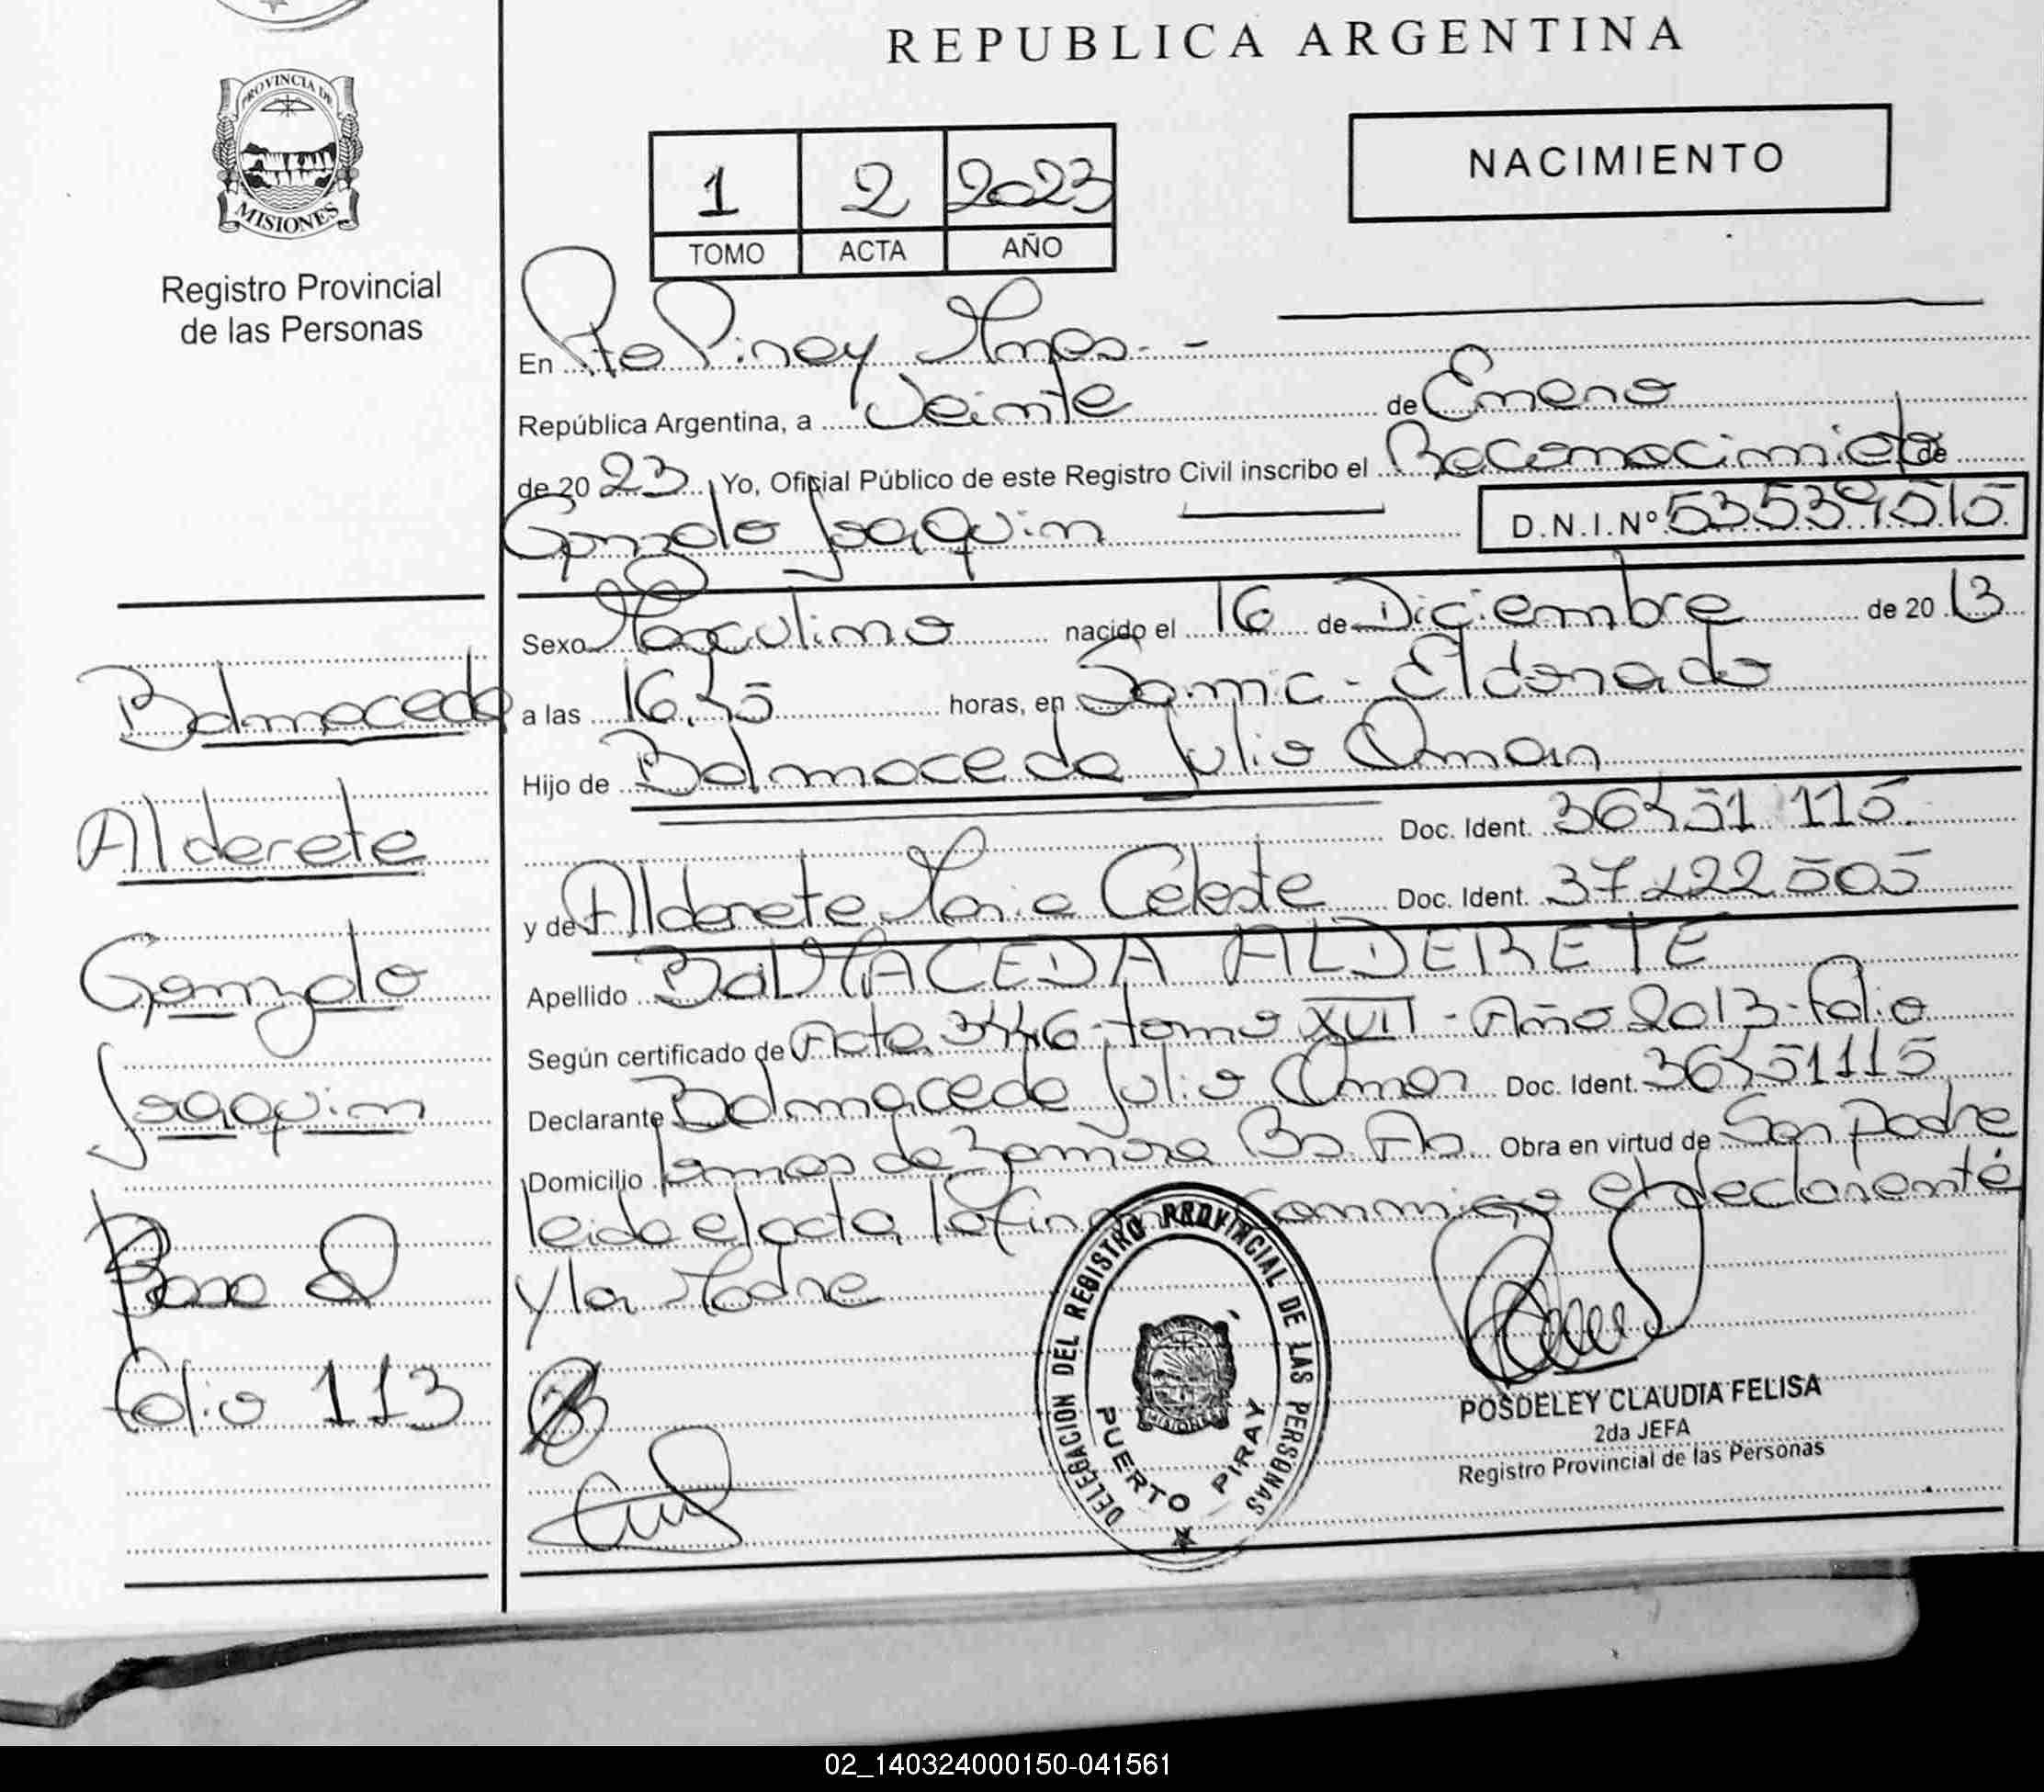 REPUBLICA ARGENTINA
PROVINCIA DE
MISIONES
Registro Provincial
de las Personas
NACIMIENTO
1 2 2023
TOMO ACTA AÑO
En Pto Piray Mnes. -
República Argentina, a Veinte de Enero
de 20 23 Yo, Oficial Público de este Registro Civil inscribo el Reconocimieto de
Gonzalo Joaquin D.N.I.Nº 53539515
Sexo Masculino nacido el 16 de Diciembre de 20 13
a las 16,45 horas, en Samic - Eldorado
Hijo de Balmaceda Julio Omar
Doc. Ident. 36451115
y de Alderete Maria Celeste Doc. Ident.
Apellido BALMACEDA ALDERETE
Según certificado de Acta 3446 - tomo XVII - Año 2013 - folio
Declarante Balmaceda Julio Omar Doc. Ident. 36451115
Domicilio lomas de Zamora Bs As Obra en virtud de Ser Padre
leida el acta, la firman conmigo el declarante
y la Madre
Balmaceda
Alderete
Gonzalo
Joaquin
folio 113
DELEGACION DEL REGISTRO PROVINCIAL DE LAS PERSONAS
PUERTO PIRAY
MISIONES
POSDELEY CLAUDIA FELISA
2da JEFA
Registro Provincial de las Personas
02_140324000150-041561